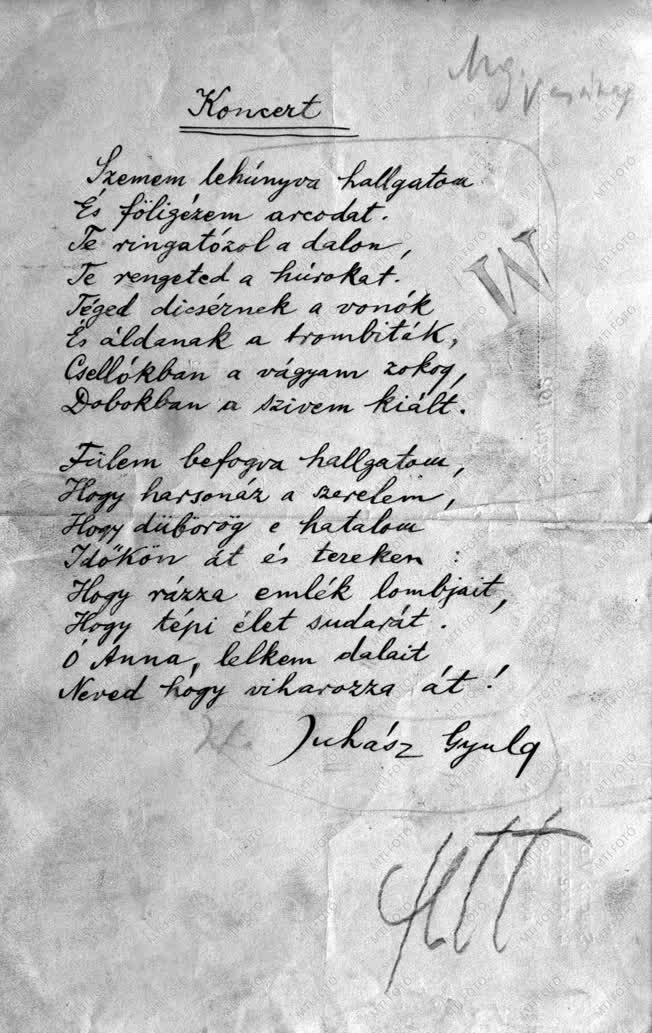 Koncert
Szemem lehúnyva hallgatom
És föligézem arcodat.
Te ringatózol a dalon,
Te rengeted a húrokat.
Téged dicsérnek a vonók
És áldanak a trombiták,
Csellókban a vágyam zokog,
Dobokban a szivem kiált.
Fülem befogva hallgatom,
Hogy harsonáz a szerelem,
Hogy dübörög e hatalom
Időkön át és tereken :
Hogy rázza emlék lombjait,
Hogy tépi élet sudarát.
Ó Anna, lelkem dalait
Neved hogy viharozza át!
Juhász Gyula
W
MTI FOTÓ